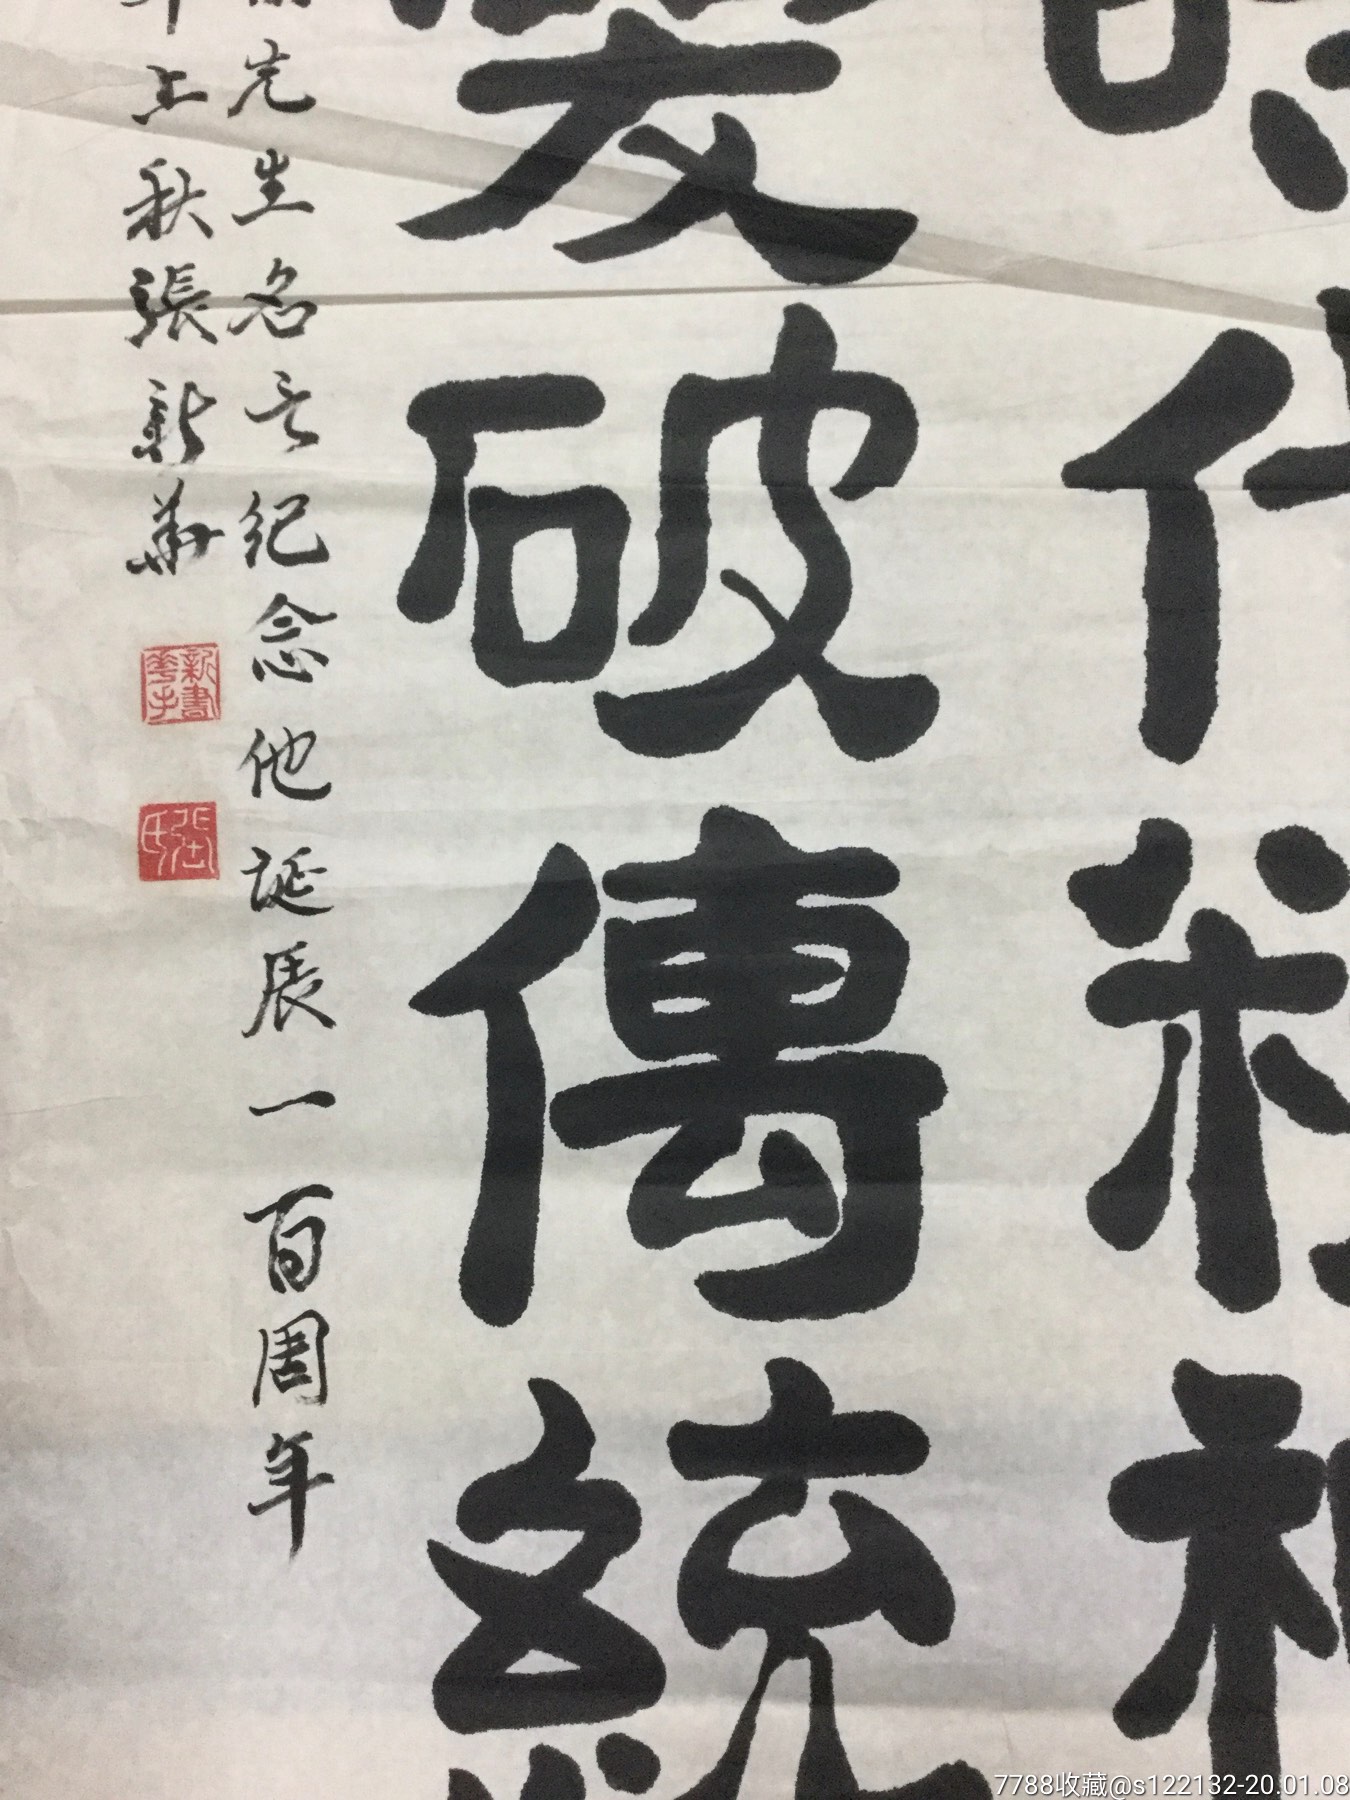 代精神
破傳統
先生名言紀念他誕辰一百周年
年上秋張新華
張氏
7788收藏@s122132-20.01.08